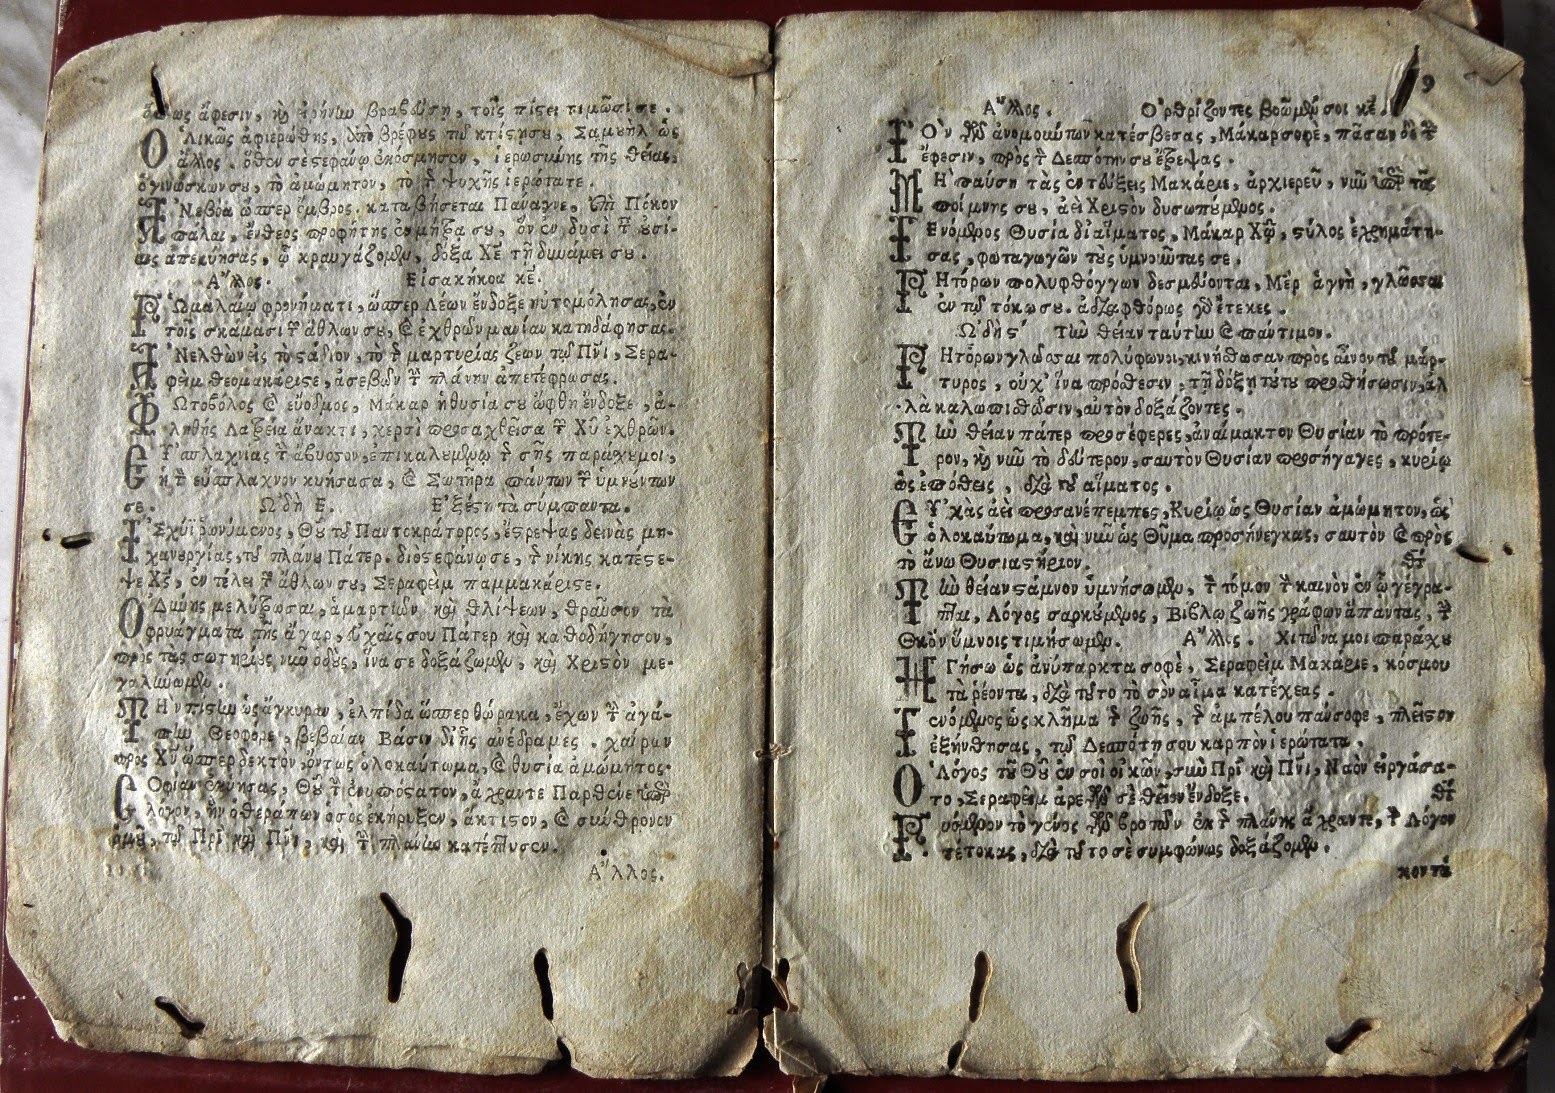 ἄφεσιν, καὶ εἰρήνην βραβεύση, τοῖς πίςει τιμῶσί σε.
ΟΛικῶς ἀφιερώθης, ἀπὸ βρέφους τῷ κτίςησου, Σαμυὴλ ὡς
ἄλλος. ὅθεν σὲ ςεφάνῳ ἐκόσμησεν, ἱερωσύνης τῆς θείας,
ὁ γινώσκων σου, τὸ ἀμώμητον, τὸ τῆς ψυχῆς ἱερώτατε.
ΑΝεβόα ὥσπερ ὄμβρος. καταβήσεται Πάναγνε, ἐπὶ Πόκον
πάλαι, ἔνθεος προφήτης ἐν μήτρᾳ σου, ὃν ἐν δυσὶ ταῖς οὐσί-
αις ἀπεκύησας, ᾧ κραυγάζομεν, δόξα Χὲ τῇ δυνάμει σου.
Ἄλλος. Εἰσακήκοα κὲ.
ΡΩμαλαίῳ φρονήματι, ὥσπερ Λέων ἔνδοξε ηὐτομόλησας, ἐν
τοῖς σκάμασι τῶν ἄθλων σου, καὶ ἐχθρῶν μανίαν κατηδάφησας.
ΑΝελθὼν εἰς τὸ ςάδιον, τὸ τῆς μαρτυρίας ζέων τῷ Πνι, Σερα-
φεὶμ θεομακάριςε, ἀσεβῶν τὴν πλάνην ἀπετέφρωσας.
ΦΩτοβόλος καὶ εὔοδμος, Μάκαρ ἡ θυσία σου ὤφθη ἔνδοξε, ἀ-
ληθὴς Λατρεία ἄνακτι, χερσὶ προσαχθεῖσα τῶν Χῦ ἐχθρῶν.
ΕΥσπλαχνίας τὴν ἄβυσσον, ἐπικαλουμένῳ τῆς σῆς παράχυμοι,
ἡ τὸν εὔσπλαχνον κυήσασα, καὶ Σωτῆρα πάντων τῶν ὑμνούντων
σε. ᾨδὴ Ε. Ἐξέςη τὰ σύμπαντα.
ΙΣχύϊ ῥωνύμενος, Θῦ τοῦ Παντοκράτορος, ἔςρεψας δεινὰς μη-
χανουργίας, τοῦ πλάνου Πάτερ. διὸ ςεφάνωσε, τῆς νίκης κατέςε-
ψε Χς, ἐν τέλει τῶν ἄθλων σου, Σεραφεὶμ παμμακάριςε.
ΟΔύνης με λύτρωσαι, ἁμαρτιῶν καὶ θλίψεων, θραῦσον τὰ
φρυάγματα τῆς ἄγαρ, εὐχαῖς σου Πάτερ καὶ καθοδήγησον,
πρὸς τὰς σωτηρίους νῦν ὁδοὺς, ἵνα σε δοξάζωμεν, καὶ Χριςὸν με-
γαλύωμεν.
ΤΗν πίςιν ὡς ἄγκυραν, ἐλπίδα ὥσπερ θώρακα, ἔχων τὴν ἀγά-
πην Θεοφόρε, βεβαίαν Βάσιν δι' ἧς ἀνέδραμες. χαίρων
πρὸς Χὺ ὥσπερ δεκτὸν, ὄντως ὁλοκαύτωμα, καὶ θυσία ἀμώμητος.
ΣΟφίαν ἐκύησας, Θῦ τὴν ἐνυπόςατον, ἄχραντε Παρθένε ὑπὲρ
λόγον, ἣν ὁ θεράπων ὁσος ἐκήρυξεν, ἄκτιςον, καὶ σύνθρονον
ὁμοῦ, τῷ Πρὶ καὶ Πνι, καὶ τὴν πλάνην κατέπτυσεν.
Ἄλλος.
9
Ἄλλος. Ὀρθρίζοντες βοῶμέν σοι κὲ.
ΤΟν τῶν ἀνομούντων κατέσβεσας, Μάκαρ σοφε, πᾶσαν δὲ τὴν
ἔφεσιν, πρὸς τὸν Δεσπότην σου ἔτρεψας.
ΜΗ παύσῃ τὰς ἐντεύξεις Μακάριε, ἀρχιερεῦ, νῦν ὑπὲρ τῆς
ποίμνης σου, ἀεὶ Χριςὸν δυσωπούμενος.
ΓΕνόμενος Θυσία δι' αἵματος, Μάκαρ Χῷ, ςύλος ἐχρημάτη-
σας, φωταγωγῶν τοὺς ὑμνοῦντας σε.
ΡΗτόρων πολυφθόγγων δεσμεύονται, Μὲρ ἁγνὴ, γλῶσσαι
ἐν τῷ τόκῳ σου. ἀδιαφθόρως γὰρ ἔτεκες.
ᾨδὴ ς' Τὴν θείαν ταύτην καὶ πάντιμον.
ΡΗτόρων γλῶσσαι πολύφωνοι, κινήθωσαν πρὸς αἶνον τοῦ μάρ-
τυρος, οὐχ' ἵνα πρόσθεσιν, τῇ δόξῃ τούτου προσθήσωσιν, ἀλ
λὰ καλωπισθῶσιν, αὐτὸν δοξάζοντες.
ΤΗν θείαν πάτερ προσέφερες, ἀναίμακτον Θυσίαν τὸ πρότε-
ρον, καὶ νῦν τὸ δεύτερον, σαυτὸν Θυσίαν προσήγαγες, κυρίῳ
ὡς ἐπόθεις, διὰ τοῦ αἵματος.
ΕΥχὰς ἀεὶ προσανέπεμπες, Κυρίῳ ὡς Θυσίαν ἀμώμητον, ὡς
ὁλοκαύτωμα, καὶ νῦν ὡς Θῦμα προσήνεγκας, σαυτὸν καὶ πρὸς
τὸ ἄνω Θυσιαςήριον.
ΤΗν θείαν ςάμνον ὑμνήσωμεν, τὸν τόμον τὸν καινὸν ἐν ᾧ γέγρα-
πται, Λόγος σαρκούμενος, Βίβλῳ ζωῆς γράφων ἅπαντας, τὴν
Θκον ὕμνοις τιμήσωμεν. Ἄλλος. Χιτῶνα μοι παράχυ
ΗΓήσω ὡς ἀνύπαρκτα σοφὲ, Σεραφεὶμ Μακάριε, κόσμου
τὰ ῥέοντα, διὰ τοῦτο τὸ σὸν αἷμα κατέχεας.
Γενόμενος ὡς κλῆμα τῆς ζωῆς, τῆς ἀμπέλου πάνσοφε, πλεῖςον
ἐξήνθησας, τῷ Δεσπότῃ σου καρπὸν ἱερώτατα.
ΟΛόγος τοῦ Θῦ ἐν σοὶ οἰκῶν, σὺν Πρὶ καὶ Πνι, Ναὸν εἰργάσα-
το, Σεραφεὶμ ἀρετῶν σὲ θεῖον ἔνδοξε.
Ρυόμενον τὸ γένος τῶν βροτῶν ἐκ τῆς πλάνης ἄχραντε, τὸν Λόγον
τέτοκας, διὰ τοῦτο σὲ συμφώνως δοξάζομεν.
κοντά